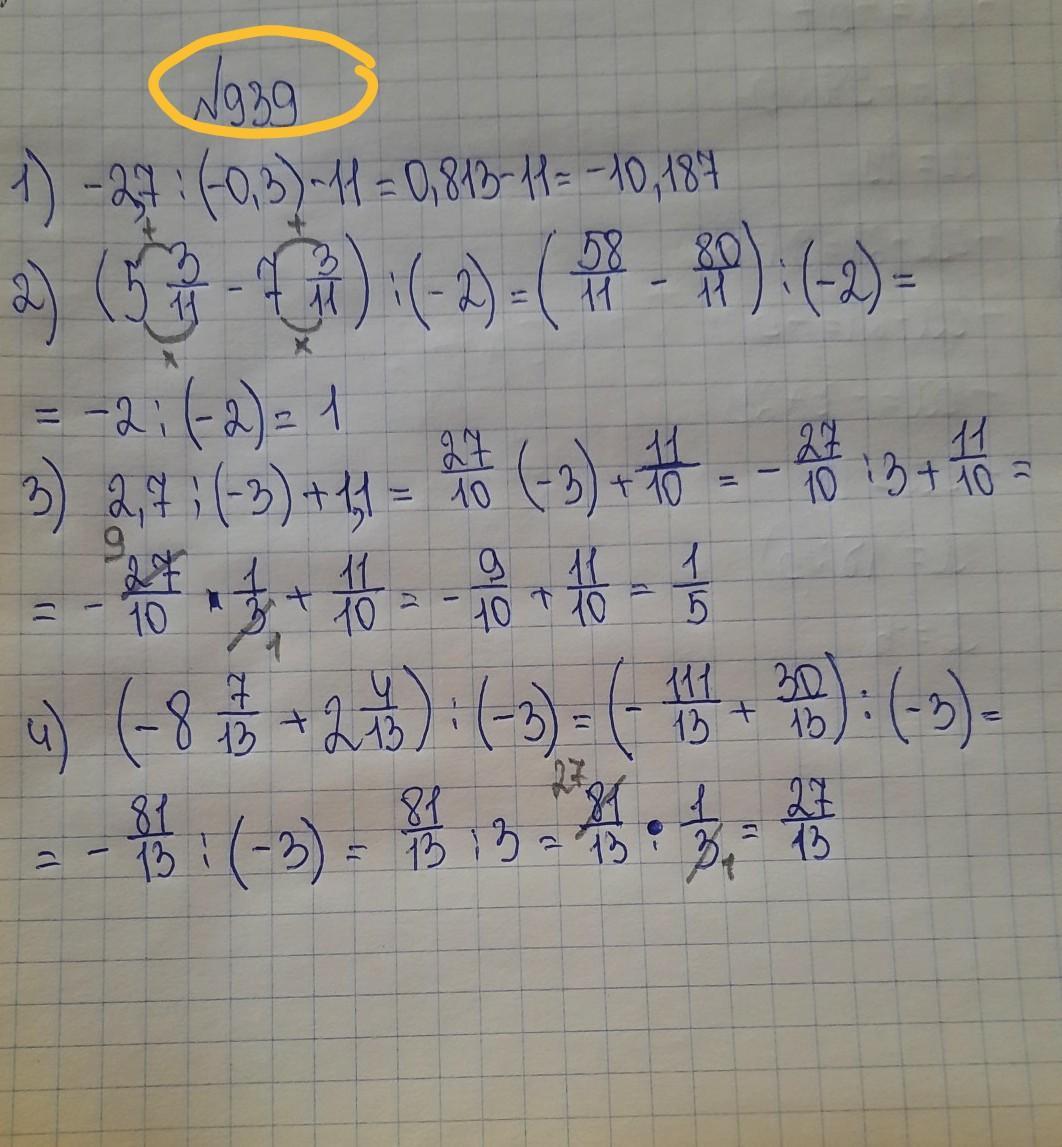 №939
1) -2,7 : (-0,3) - 11 = 0,813 - 11 = -10,187
+ +
2) (5 3/11 - 7 3/11) : (-2) = (58/11 - 80/11) : (-2) =
x x
= -2 : (-2) = 1
3) 2,7 : (-3) + 1,1 = 27/10 (-3) + 11/10 = - 27/10 : 3 + 11/10 =
9
= - 27/10 · 1/3 + 11/10 = - 9/10 + 11/10 = 1/5
1
4) (-8 7/13 + 2 4/13) : (-3) = (- 111/13 + 30/13) : (-3) =
27
= - 81/13 : (-3) = 81/13 : 3 = 81/13 · 1/3 = 27/13
1